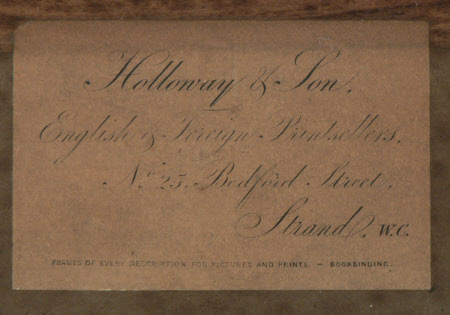 Holloway & Son.
English & Foreign Printsellers.
No. 25. Bedford Street.
Strand. W.C.
FRAMES OF EVERY DESCRIPTION FOR PICTURES AND PRINTS. — BOOKBINDING.